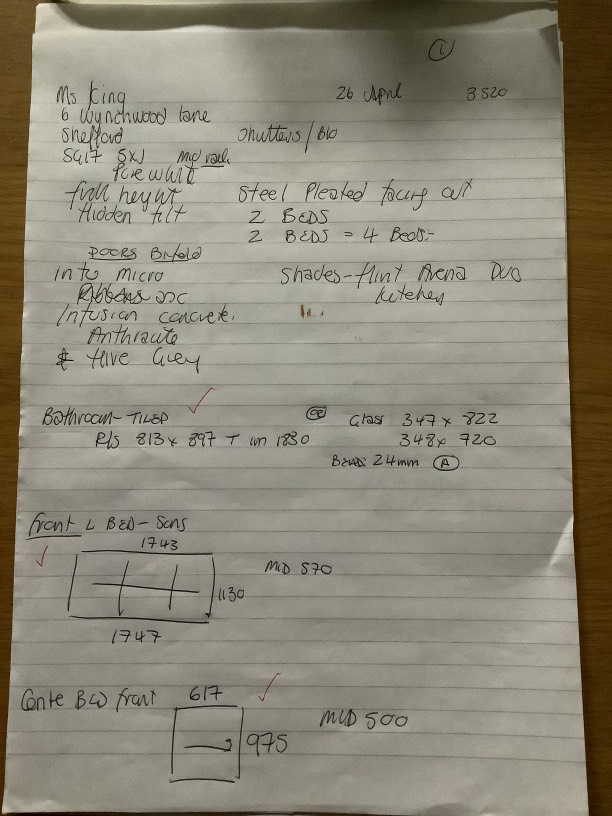 1
Ms King 26 April 3520
6 Wynchwood Lane
Shefford Shutters/Blo
SG17 5XJ Mid rail
Pure White
full height Steel Pleated facing out
Hidden tilt 2 BEDS
2 BEDS = 4 Beds:-
DOORS Bifold
into micro Shades - flint Arena Duo
Kitchen
Infusion concrete.
Anthracite
Grey
Bathroom - TILED Glass 347 x 822
R/s 813 x 897 T in 1830 348 x 720
BEAD: 24mm A
front L BED - Sons
1743
MID 570
1130
1747
BED front 617
MID 500
975